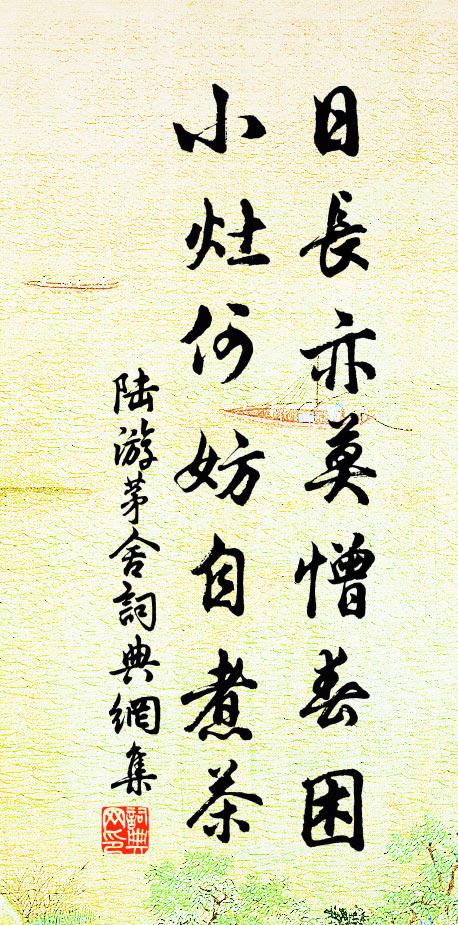 日長亦莫憎春困
小灶何妨自煮茶
陆游茅舍詞典網集
詞典
网印